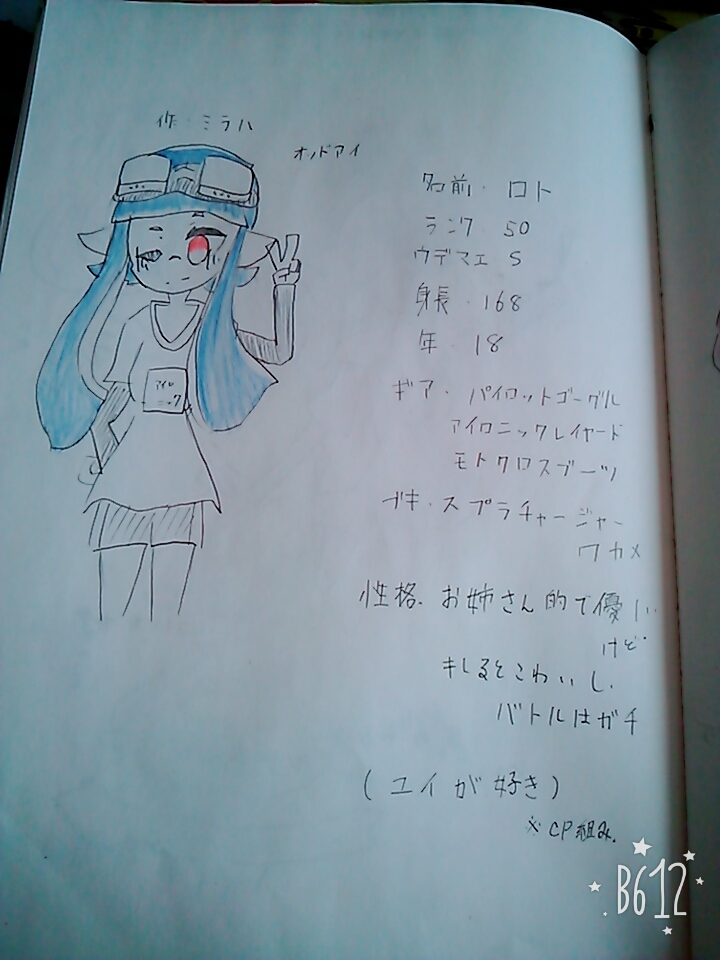 作 ミラハ
オッドアイ
名前・ロト
ランク 50
ウデマエ S
身長・168
年・18
ギア・パイロットゴーグル
アイロニックレイヤード
モトクロスブーツ
ブキ・スプラチャージャー
ワカメ
性格.お姉さん的で優しい
けど
キレるとこわいし、
バトルはガチ
(ユイが好き)
※CP組み.
アイロ
ニック
B612